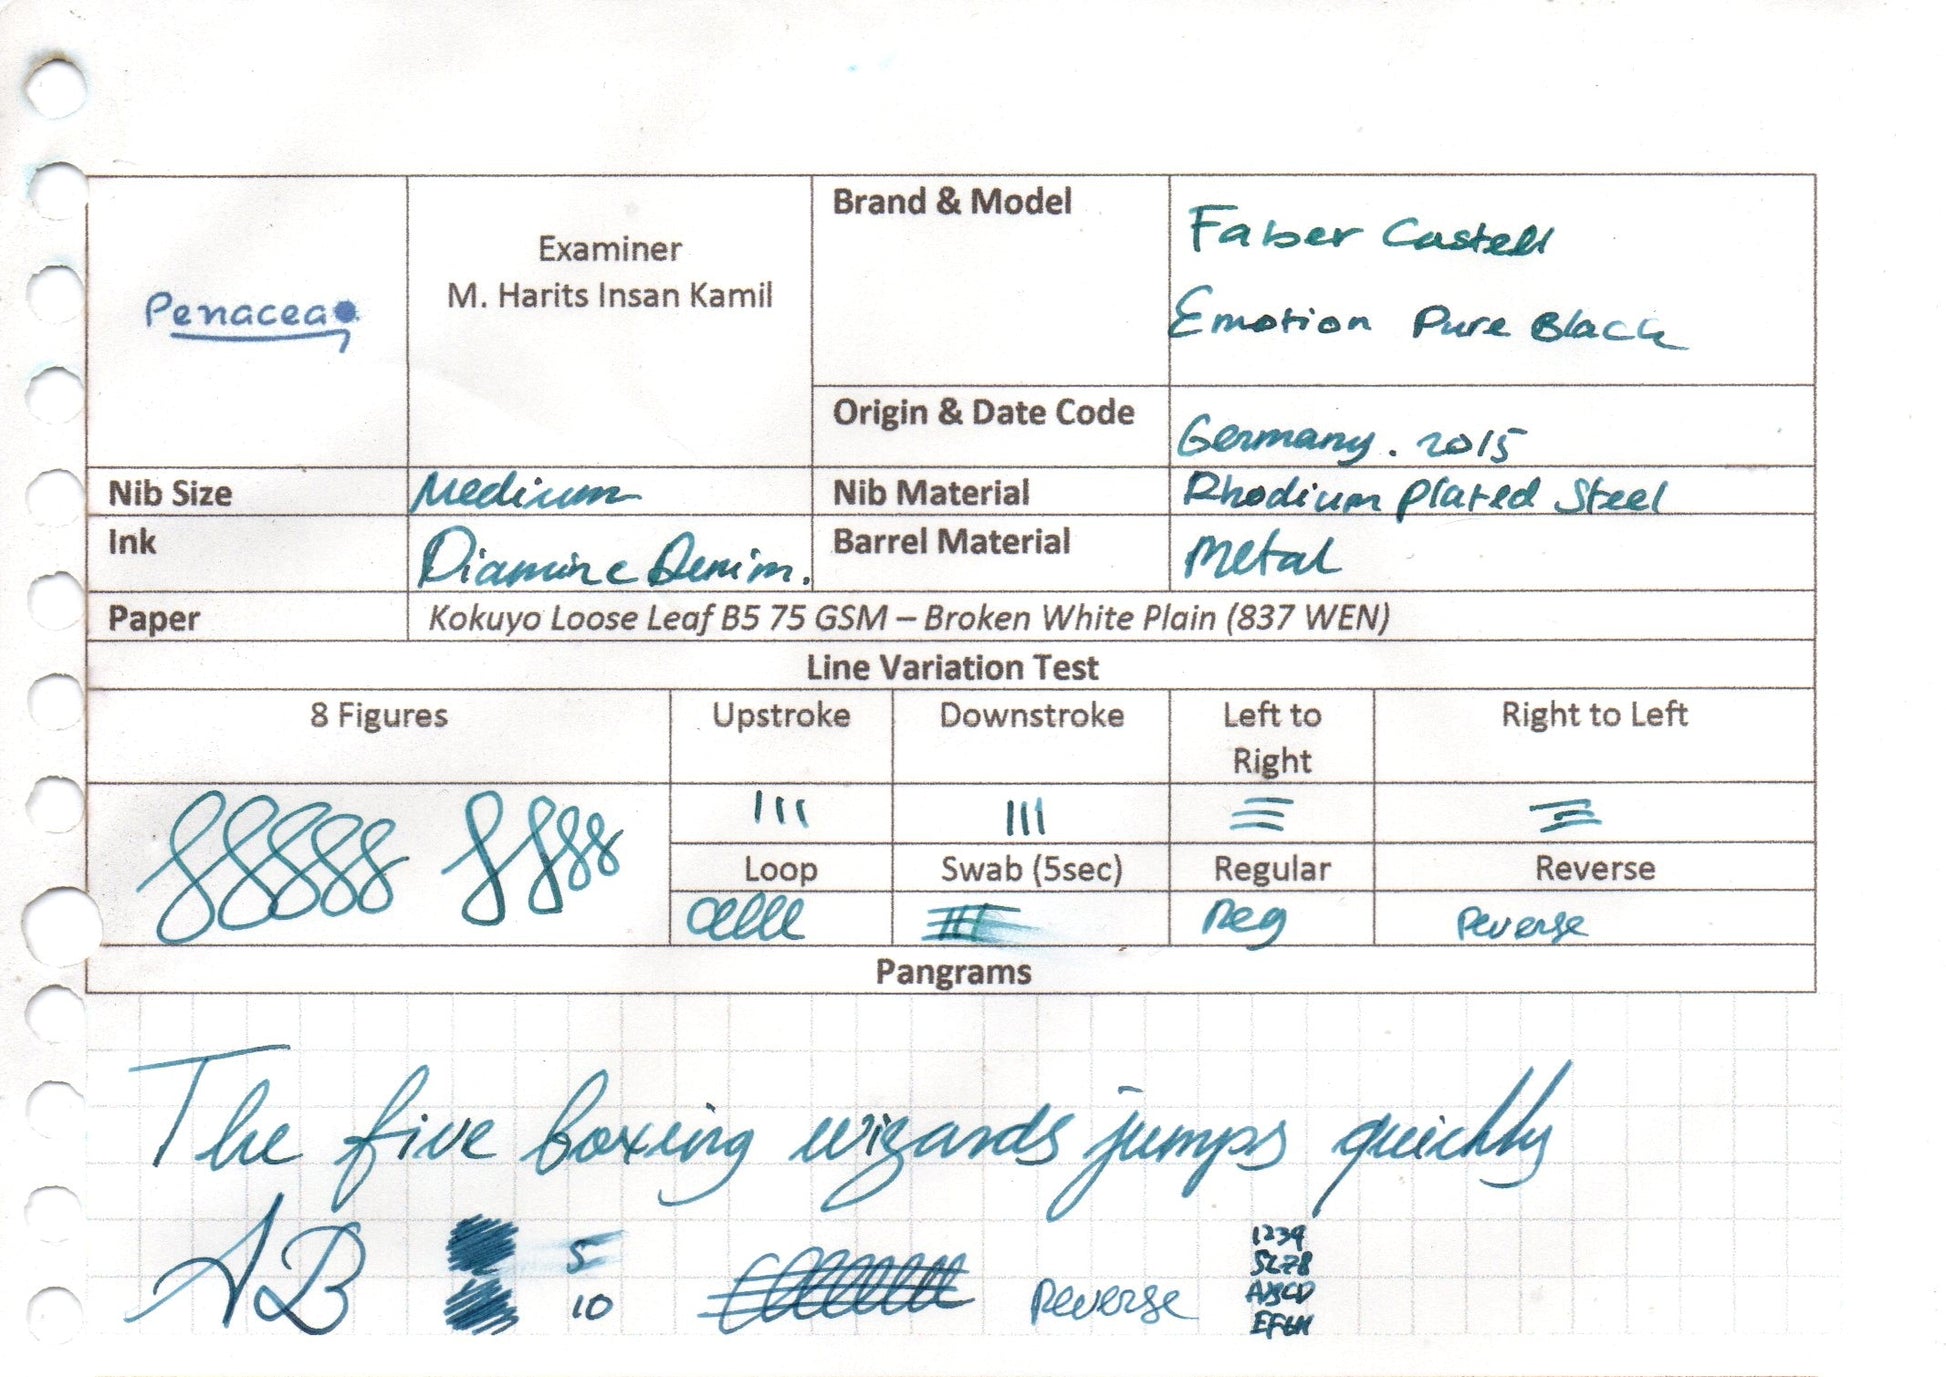 Penacea
Examiner
M. Harits Insan Kamil
Brand & Model
Faber Castell
Emotion Pure Black
Origin & Date Code
Germany. 2015
Nib Size
Medium
Nib Material
Rhodium Plated Steel
Ink
Diamine Denim.
Barrel Material
Metal
Paper
Kokuyo Loose Leaf B5 75 GSM – Broken White Plain (837 WEN)
Line Variation Test
8 Figures
Upstroke
Downstroke
Left to
Right
Right to Left
Loop
Swab (5sec)
Regular
Reverse
Reg
Reverse
Pangrams
The five boxing wizards jumps quickly
AB
5
10
Reverse
1234
5678
ABCD
EFGH